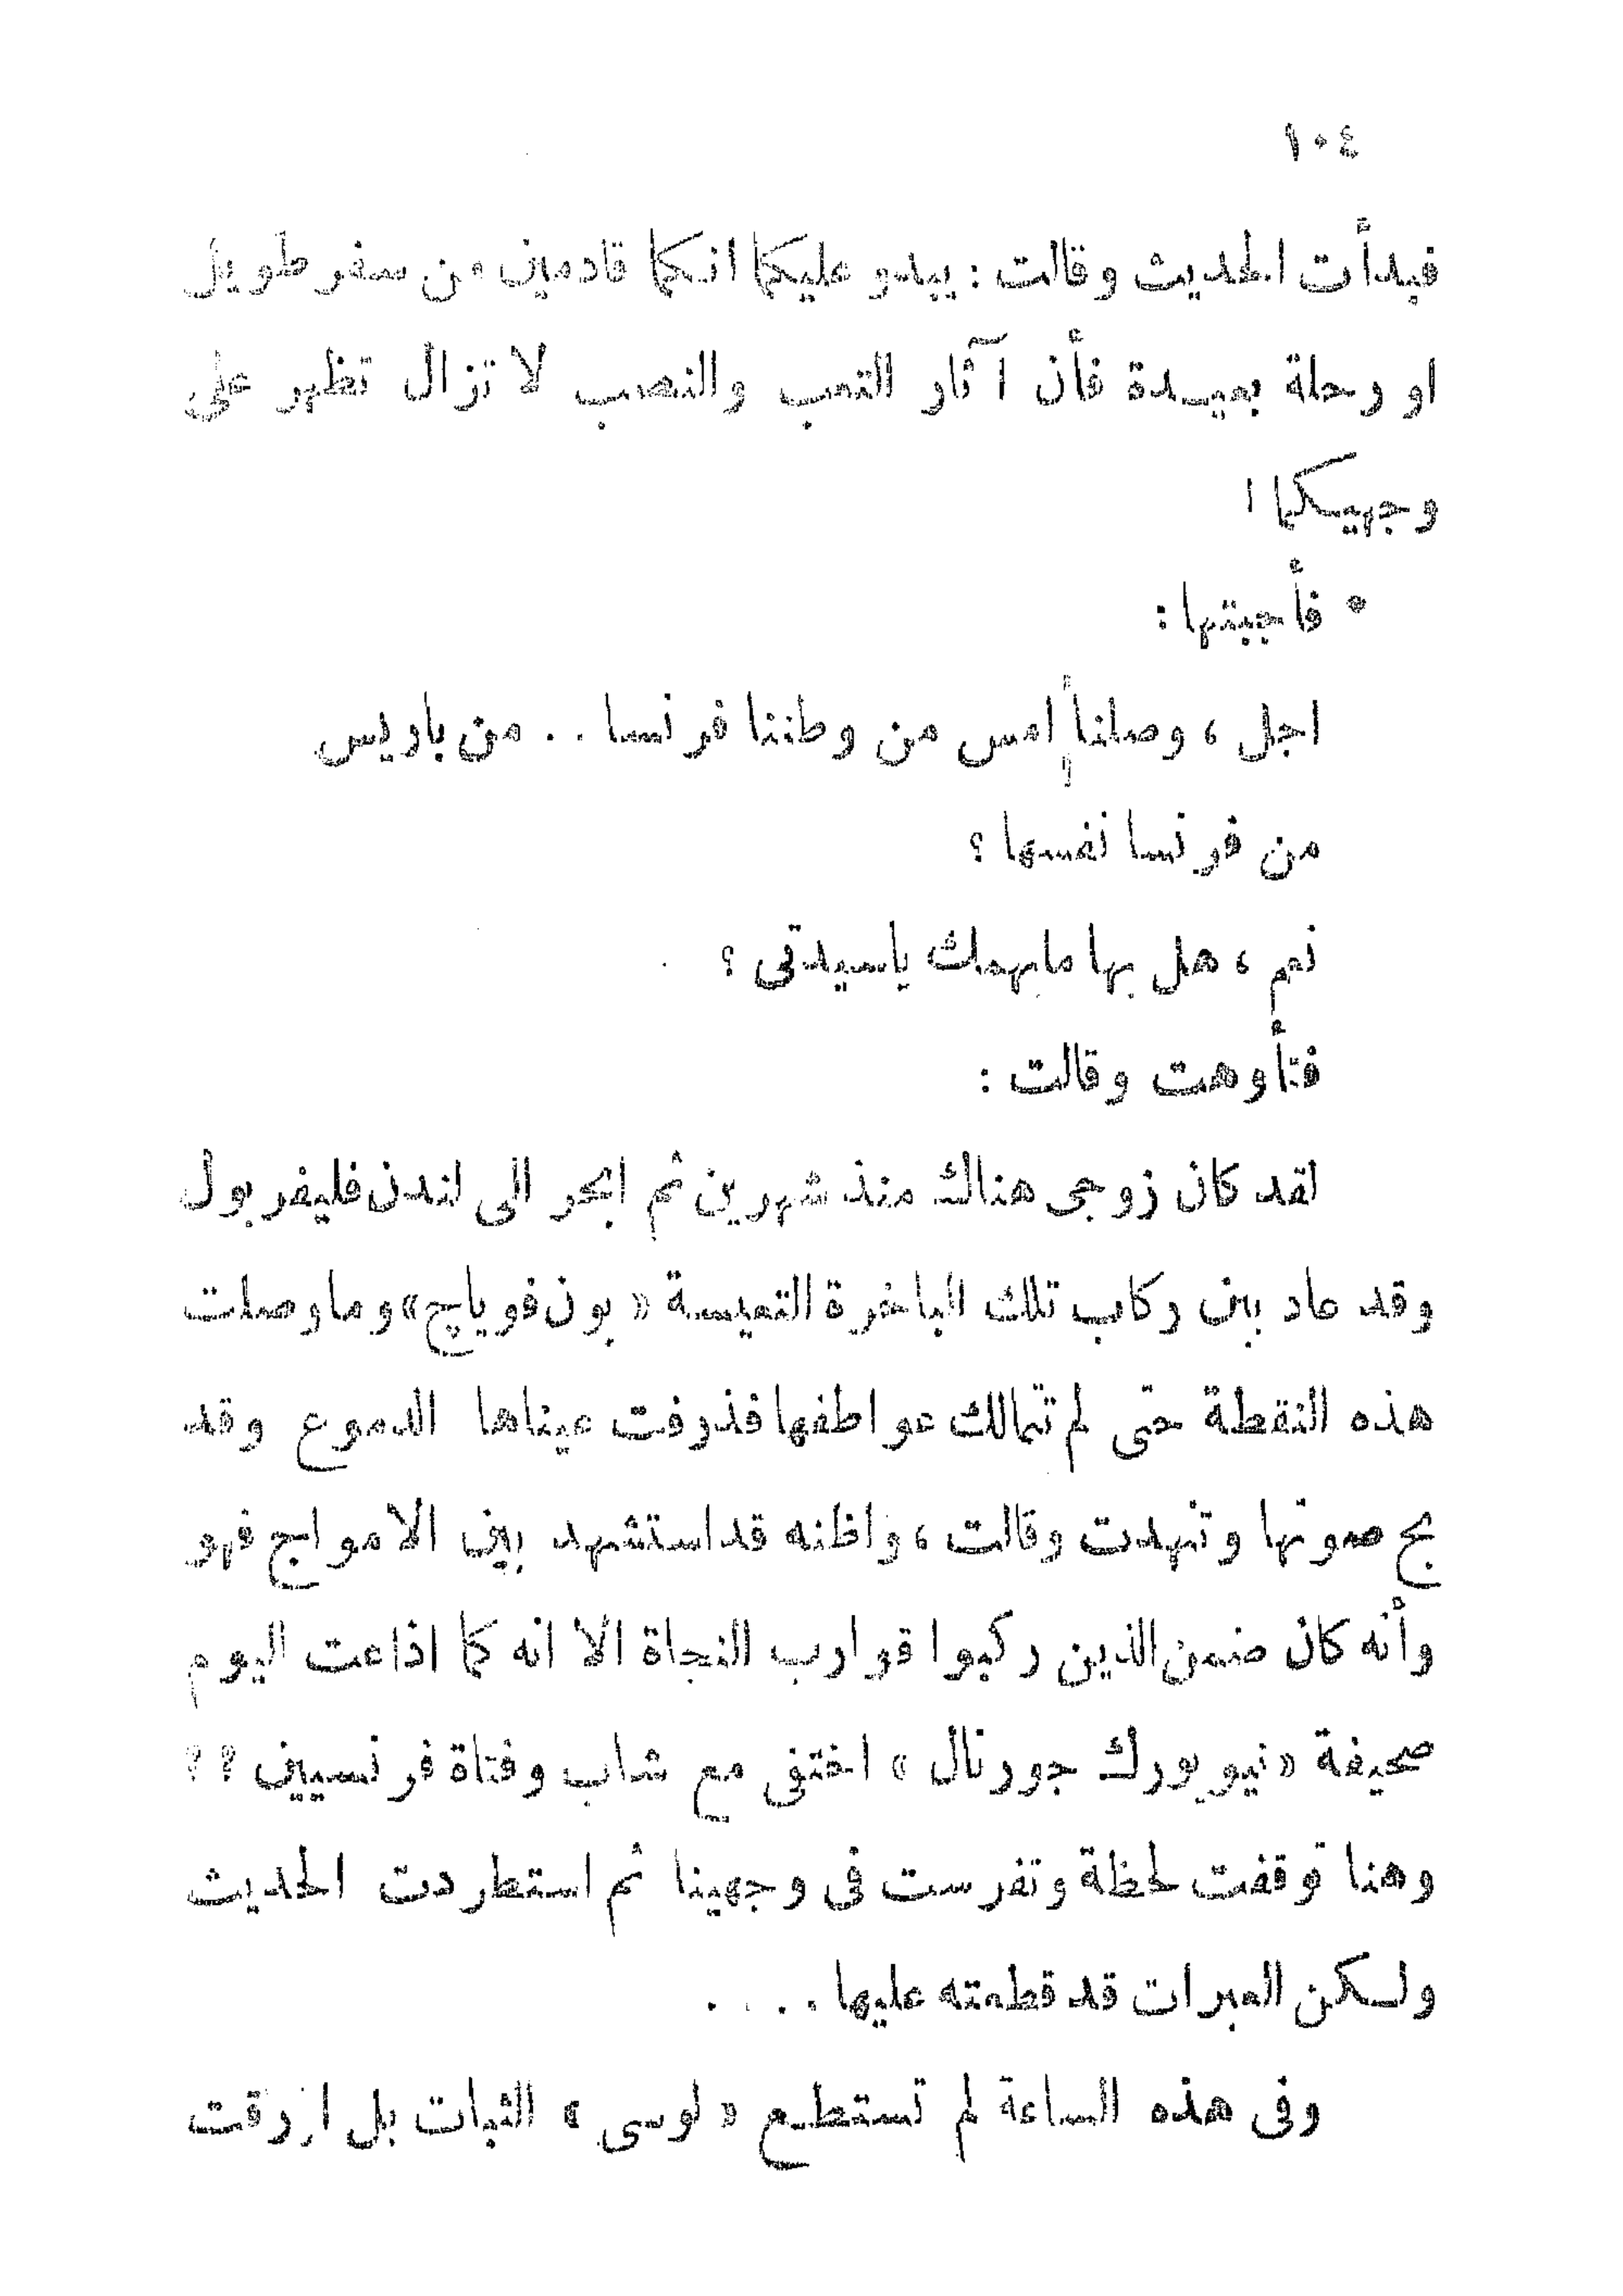 ١٠٤
فبدأت الحديث وقالت : يبدو عليكما انكما قادمين من سفر طويل
او رحلة بعيدة فأن آثار التعب والنصب لا تزال تظهر على
وجهيكما !
* فأجبتها :
اجل ، وصلنا أمس من وطننا فرنسا . . من باريس
من فرنسا نفسها ؟
نعم ، هل بها مايهمك ياسيدتى ؟
فتأوهت وقالت :
لقد كان زوجى هناك منذ شهرين ثم ابحر الى لندن فليفربول
وقد عاد بين ركاب تلك الباخرة التعيسة « بون فوياچ » وما وصلت
هذه النقطة حتى لم تمالك عواطفها فذرفت عيناها الدموع وقد
بح صوتها وتنهدت وقالت ، واظنه قد استشهد بين الامواج فهو
وأنه كان ضمن الذين ركبوا قوارب النجاة الا انه كما اذاعت اليوم
صحيفة « نيويورك جورنال » اختفى مع شاب وفتاة فرنسيين ؟ ؟
وهنا توقفت لحظة وتفرست فى وجهينا ثم استطردت الحديث
ولكن العبرات قد قطعته عليها . . . .
وفى هذه الساعة لم تستطع « لوسى » الثبات بل ازرقت